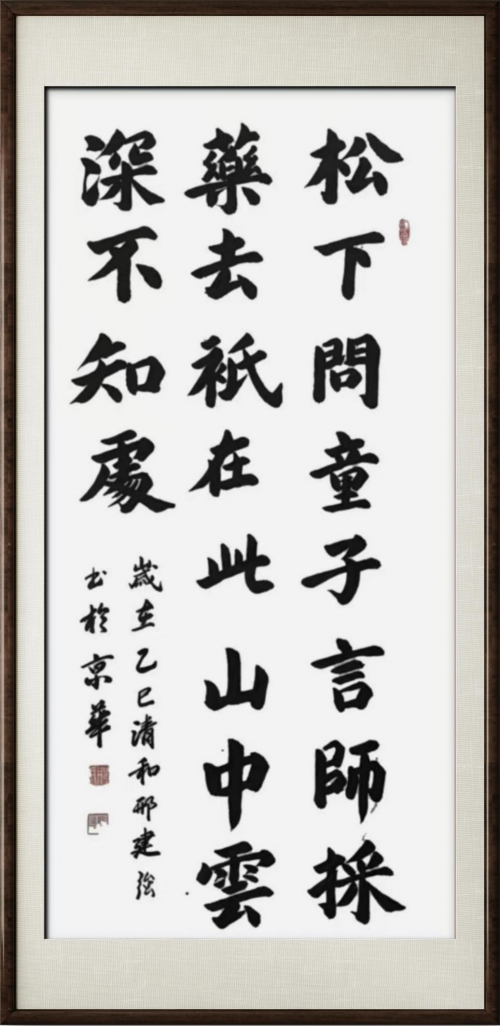 松下問童子言師採
藥去衹在此山中雲
深不知處
歲在乙巳清和邢建強
书於京華